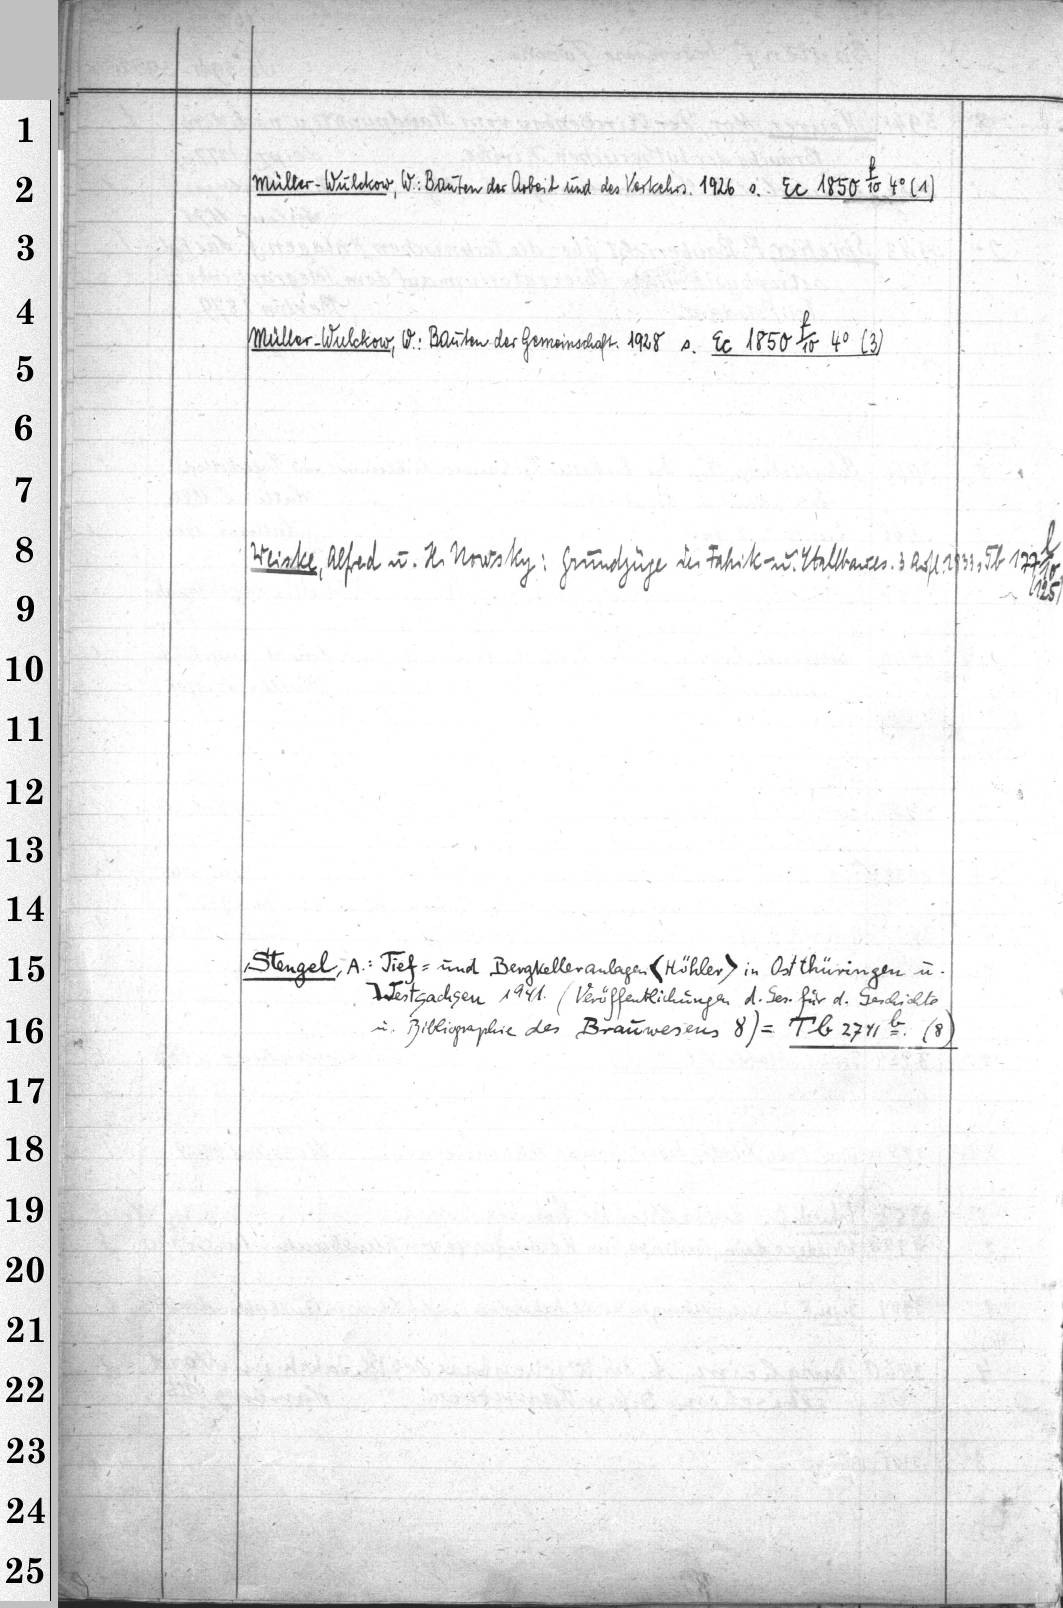 1
2
Müller-Wulckow, W.: Bauten der Arbeit und des Verkehrs. 1926 s. Ec 1850 f/10 4° (1)
3
4
Müller-Wulckow, W.: Bauten der Gemeinschaft. 1928 s. Ec 1850 f/10 4° (3)
5
6
7
8
Weiske, Alfred u. H. Nowsky: Grundzüge des Fabrik- u. Stallbaues. 3 Aufl. 1933, Tb 177 l/10
9
(125)
10
11
12
13
14
15
Stengel, A.: Tief= und Bergkelleranlagen <Höhler> in Ostthüringen u.
Westsachsen 1941. (Veröffentlichungen d. Ges. für d. Geschichte
16
u. Bibliographie des Brauwesens 8) = Tb 2741 b. (8)
17
18
19
20
21
22
23
24
25